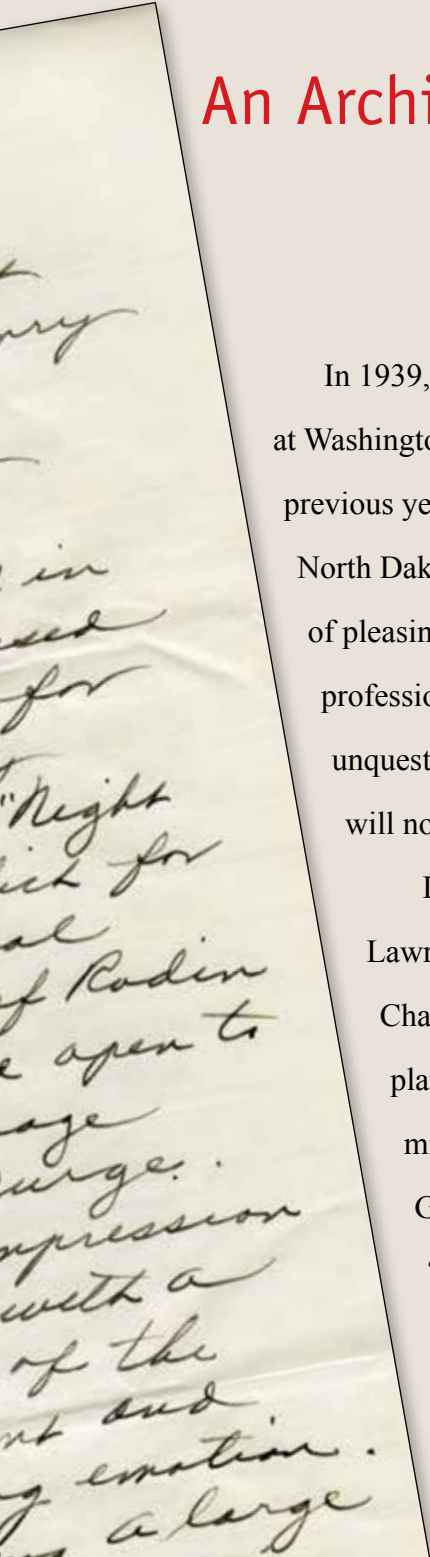 An Archi
In 1939,
at Washingto
previous ye
North Dak
of pleasin
professio
unquest
will no
Lawr
Cha
pla
m
G
in
for
"Night
for
of Rodin
open to
urge.
mpression
with a
of the
and
emotion.
a large